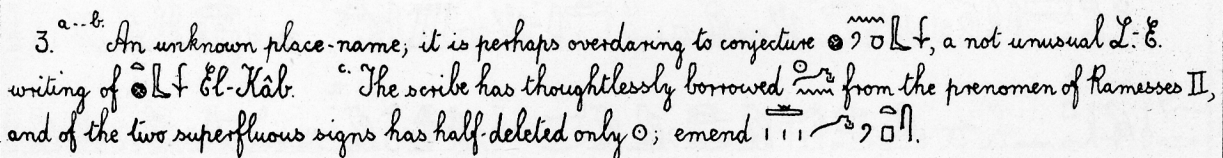 3. a--b. An unknown place-name; it is perhaps overdaring to conjecture , a not unusual L.-E.
writing of El-Kâb. c. The scribe has thoughtlessly borrowed from the prenomen of Ramesses II,
and of the two superfluous signs has half-deleted only ; emend .